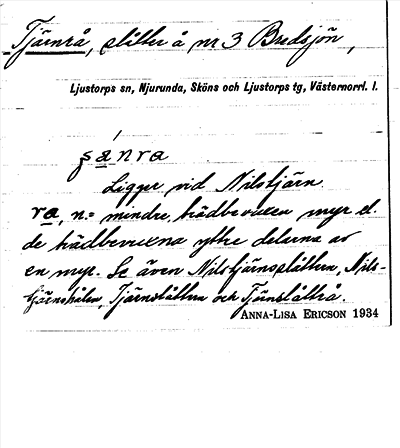 Tjärnrå, slåtter å nr 3 Bredsjön,
Ljustorps sn, Njurunda, Sköns och Ljustorps tg, Västernorrl. l.
Ligger vid Nilstjärn.
ra, n. = mindre, trädbevuxen myr el.
de trädbevuxna yttre delarna av
en myr. Se även Nilstjärnsslåttern, Nils-
tjärnshålen, Tjärnslåttern och Tjärnslåttrå.
ANNA-LISA ERICSON 1934